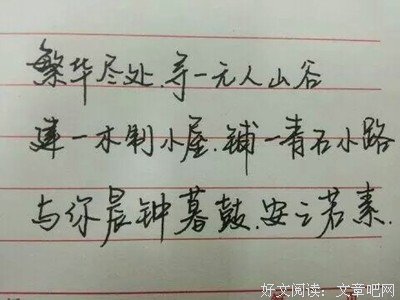 繁华尽处.寻一无人山谷
建一木制小屋.铺一青石小路
与你晨钟暮鼓.安之若素.
好文阅读：文章吧网